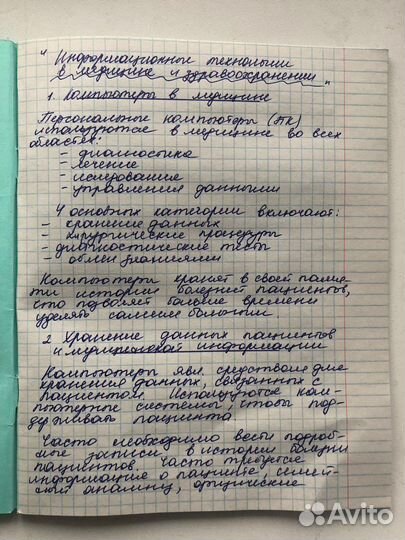 " Информационные технологии
в медицине и здравоохранении "
1. Компьютеры в медицине
Персональные компьютеры (ПК)
используются в медицине во всех
областях:
- диагностика
- лечение
- иследование
- управления данными
4 основных категории включают:
- хранение данных
- хирургические процедуры
- диагностические тесты
- обмен знаниями
Компьютеры хранят в своей памя-
ти истории болезней пациентов,
что позволяет больше времени
уделять самим больным.
2 Хранение данных пациентов
и медицинской информации
Компьютеры явл. средством для
хранения данных, связанных с
пациентом. Используются ком-
пьютерные системы, чтобы под-
держивать пациента.
Часто необходимо вести подроб-
ные записи в истории болезни
пациентов. Часто требуется
информацию о пациенте, семей-
ный анамнез, физические
Avito